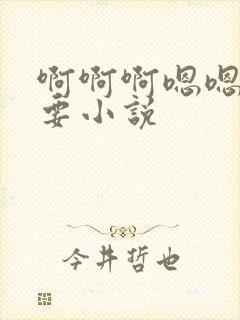 啊啊啊嗯嗯
要小说
今井哲也